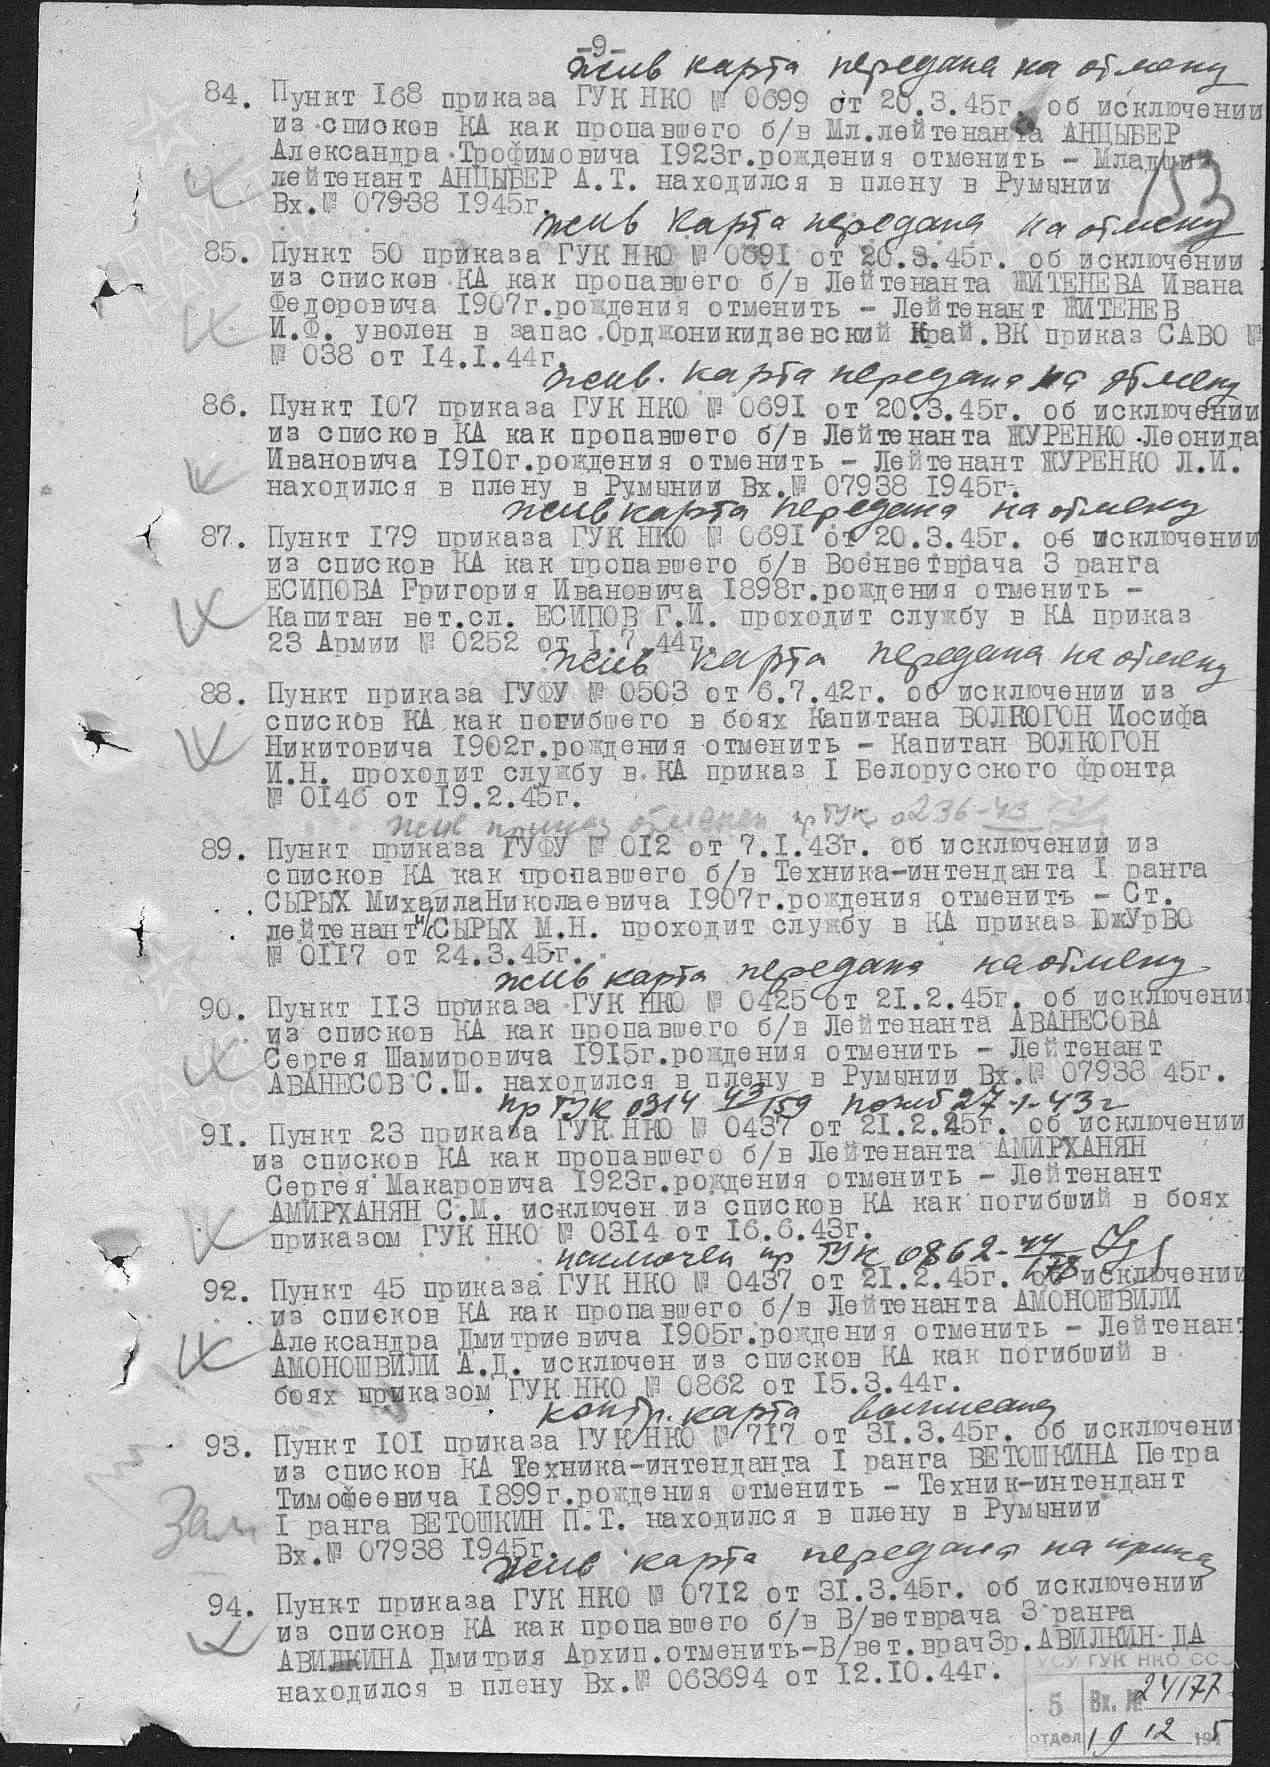 -9-
жив карта передана на отмену
84. Пункт I68 приказа ГУК НКО № 0699 от 20.3.45г. об исключении
из списков КА как пропавшего б/в Мл.лейтенанта АНЦЫБЕР
Александра Трофимовича I923г.рождения отменить - Младший
лейтенант АНЦЫБЕР А.Т. находился в плену в Румынии
Вх.№ 07938 I945г.
153
жив карта передана на отмену
85. Пункт 50 приказа ГУК НКО № 0691 от 20.3.45г. об исключении
из списков КА как пропавшего б/в Лейтенанта ЖИТЕНЕВА Ивана
Федоровича I907г.рождения отменить - Лейтенант ЖИТЕНЕВ
И.Ф. уволен в запас Орджоникидзевский Край.ВК приказ САВО №
№ 038 от I4.I.44г.
жив. карта передана на отмену
86. Пункт I07 приказа ГУК НКО № 0691 от 20.3.45г. об исключении
из списков КА как пропавшего б/в Лейтенанта ЖУРЕНКО Леонида
Ивановича I9I0г.рождения отменить - Лейтенант ЖУРЕНКО Л.И.
находился в плену в Румынии Вх.№ 07938 I945г.
жив карта передана на отмену
87. Пункт I79 приказа ГУК НКО № 0691 от 20.3.45г. об исключении
из списков КА как пропавшего б/в Военветврача 3 ранга
ЕСИПОВА Григория Ивановича I898г.рождения отменить -
Капитан вет.сл. ЕСИПОВ Г.И. проходит службу в КА приказ
23 Армии № 0252 от I.7.44г.
жив карта передана на отмену
88. Пункт приказа ГУФУ № 0503 от 6.7.42г. об исключении из
списков КА как погибшего в боях Капитана ВОЛКОГОН Иосифа
Никитовича I902г.рождения отменить - Капитан ВОЛКОГОН
И.Н. проходит службу в КА приказ I Белорусского фронта
№ 0I46 от I9.2.45г.
жив приказ отменен пр ГУК 0236-43
89. Пункт приказа ГУФУ № 0I2 от 7.I.43г. об исключении из
списков КА как пропавшего б/в Техника-интенданта I ранга
СЫРЫХ МихаилаНиколаевича I907г.рождения отменить - Ст.
лейтенант и/сСЫРЫХ М.Н. проходит службу в КА приказ ЮжУрВО
№ 0II7 от 24.3.45г.
жив карта передана на отмену
90. Пункт II3 приказа ГУК НКО № 0425 от 2I.2.45г. об исключении
из списков КА как пропавшего б/в Лейтенанта АВАНЕСОВА
Сергея Шамировича I9I5г.рождения отменить - Лейтенант
АВАНЕСОВ С.Ш. находился в плену в Румынии Вх.№ 07938 45г.
пр ГУК 0314 43/159 погиб 27-1-43г
9I. Пункт 23 приказа ГУК НКО № 0437 от 2I.2.45г. об исключении
из списков КА как пропавшего б/в Лейтенанта АМИРХАНЯН
Сергея Макаровича I923г.рождения отменить - Лейтенант
АМИРХАНЯН С.М. исключен из списков КА как погибший в боях
приказом ГУК НКО № 03I4 от I6.6.43г.
исключен пр ГУК 0862-44/178
92. Пункт 45 приказа ГУК НКО № 0437 от 2I.2.45г. об исключении
из списков КА как пропавшего б/в Лейтенанта АМОНОШВИЛИ
Александра Дмитриевича I905г.рождения отменить - Лейтенант
АМОНОШВИЛИ А.Д. исключен из списков КА как погибший в
боях приказом ГУК НКО № 0862 от I5.3.44г.
контр. карта выписана
93. Пункт I0I приказа ГУК НКО № 7I7 от 3I.3.45г. об исключении
из списков КА Техника-интенданта I ранга ВЕТОШКИНА Петра
Тимофеевича I899г.рождения отменить - Техник-интендант
I ранга ВЕТОШКИН П.Т. находился в плену в Румынии
Вх.№ 07938 I945г.
жив карта передана на приказ
94. Пункт приказа ГУК НКО № 07I2 от 3I.3.45г. об исключении
из списков КА как пропавшего б/в В/ветврача 3 ранга
АВИЛКИНА Дмитрия Архип.отменить-В/вет.врач3р.АВИЛКИН ДА
находился в плену Вх.№ 063694 от I2.I0.44г.
УСУ ГУК НКО ССС
5 Вх. № 24177
отдел 19 12 1945